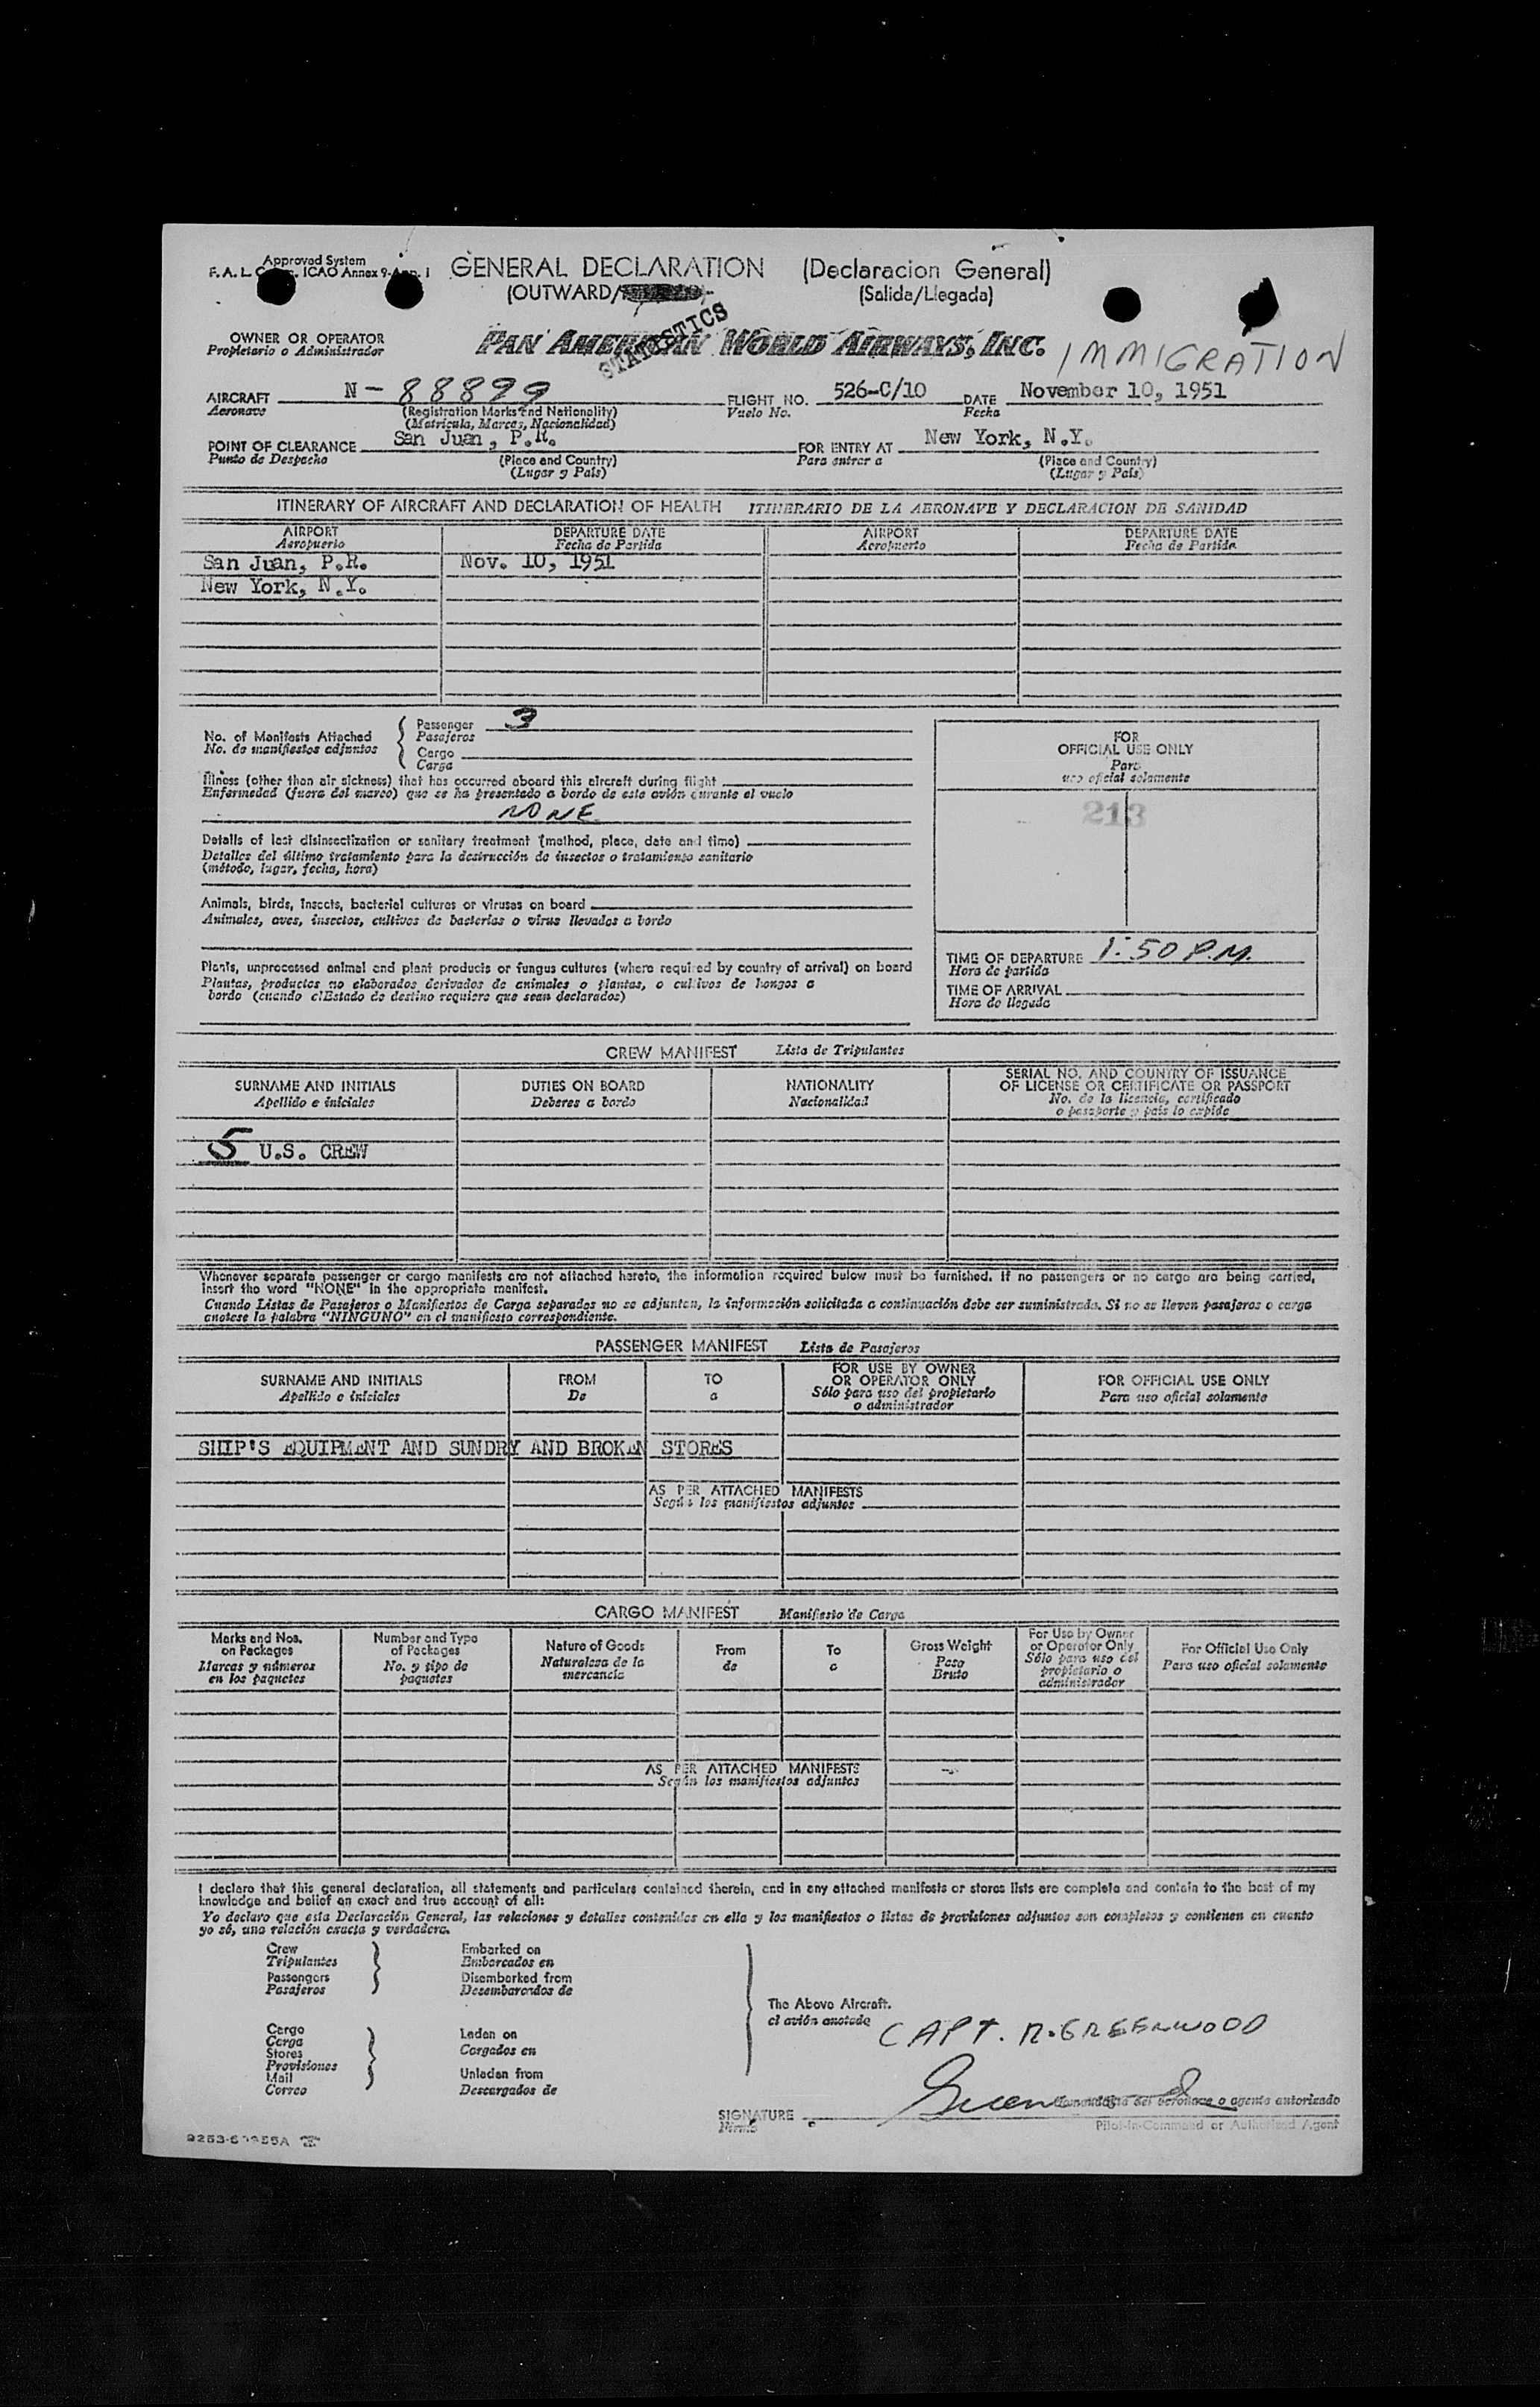 Approved System
F. A. L. ICAO Annex 9-App. 1
GENERAL DECLARATION (Declaracion General)
(OUTWARD/ (Salida/Llegada)
STATISTICS
OWNER OR OPERATOR
Propietario o Administrador
PAN AMERICAN WORLD AIRWAYS, INC.
IMMIGRATION
AIRCRAFT N - 88899 FLIGHT NO. 526-C/10 DATE November 10, 1951
Aeronave (Registration Marks and Nationality) Vuelo No. Fecha
(Matricula, Marcas, Nacionalidad)
POINT OF CLEARANCE San Juan, P.R. FOR ENTRY AT New York, N.Y.
Punto de Despacho (Place and Country) Para entrar a (Place and Country)
(Lugar y País) (Lugar y País)
ITINERARY OF AIRCRAFT AND DECLARATION OF HEALTH ITINERARIO DE LA AERONAVE Y DECLARACION DE SANIDAD
AIRPORT DEPARTURE DATE AIRPORT DEPARTURE DATE
Aeropuerto Fecha de Partida Aeropuerto Fecha de Partida
San Juan, P.R. Nov. 10, 1951
New York, N.Y.
No. of Manifests Attached
No. de manifiestos adjuntos
Passenger 3
Pasajeros
Cargo
Carga
Illness (other than air sickness) that has occurred aboard this aircraft during flight
Enfermedad (fuera del mareo) que se ha presentado a bordo de este avión durante el vuelo
NONE
Details of last disinsectization or sanitary treatment (method, place, date and time)
Detalles del último tratamiento para la destrucción de insectos o tratamiento sanitario
(método, lugar, fecha, hora)
Animals, birds, insects, bacterial cultures or viruses on board
Animales, aves, insectos, cultivos de bacterias o virus llevados a bordo
Plants, unprocessed animal and plant products or fungus cultures (where required by country of arrival) on board
Plantas, productos no elaborados derivados de animales o plantas, o cultivos de hongos a
bordo (cuando elEstado de destino requiere que sean declarados)
FOR
OFFICIAL USE ONLY
Para
uso oficial solamente
213
TIME OF DEPARTURE 1:50 P.M.
Hora de partida
TIME OF ARRIVAL
Hora de llegada
CREW MANIFEST Lista de Tripulantes
SURNAME AND INITIALS DUTIES ON BOARD NATIONALITY SERIAL NO. AND COUNTRY OF ISSUANCE
OF LICENSE OR CERTIFICATE OR PASSPORT
Apellido e iniciales Deberes a bordo Nacionalidad No. de la licencia, certificado
o pasaporte y país lo expide
5 U.S. CREW
Whenever separate passenger or cargo manifests are not attached hereto, the information required below must be furnished. If no passengers or no cargo are being carried,
insert the word "NONE" in the appropriate manifest.
Cuando Listas de Pasajeros o Manifiestos de Carga separados no se adjunten, la información solicitada a continuación debe ser suministrada. Si no se lleven pasajeros o carga
anotese la palabra "NINGUNO" en el manifiesto correspondiente.
PASSENGER MANIFEST Lista de Pasajeros
SURNAME AND INITIALS FROM TO FOR USE BY OWNER
OR OPERATOR ONLY FOR OFFICIAL USE ONLY
Apellido e iniciales De a Sólo para uso del propietario
o administrador Para uso oficial solamente
SHIP'S EQUIPMENT AND SUNDRY AND BROKEN STORES
AS PER ATTACHED MANIFESTS
Según los manifiestos adjuntos
CARGO MANIFEST Manifiesto de Carga
Marks and Nos.
on Packages
Marcas y números
en los paquetes
Number and Type
of Packages
No. y tipo de
paquetes
Nature of Goods
Naturalesa de la
mercancia
From
de
To
a
Gross Weight
Peso
Bruto
For Use by Owner
or Operator Only
Sólo para uso del
propietario o
administrador
For Official Use Only
Para uso oficial solamente
AS PER ATTACHED MANIFESTS
Según los manifiestos adjuntos
I declare that this general declaration, all statements and particulars contained therein, and in any attached manifests or stores lists are complete and contain to the best of my
knowledge and belief an exact and true account of all:
Yo declaro que esta Declaración General, las relaciones y detalles contenidos en ella y los manifiestos o listas de provisiones adjuntos son completos y contienen en cuanto
yo sé, una relación exacta y verdadera.
Crew
Tripulantes
Passengers
Pasajeros
Embarked on
Embarcados en
Disembarked from
Desembarcados de
Cargo
Carga
Stores
Provisiones
Mail
Correo
Laden on
Cargados en
Unladen from
Descargados de
The Above Aircraft.
el avión anotado
CAPT. R. GREENWOOD
SIGNATURE Greenwood
Firma
Comandante del aeronave o agente autorizado
Pilot-in-Command or Authorized Agent